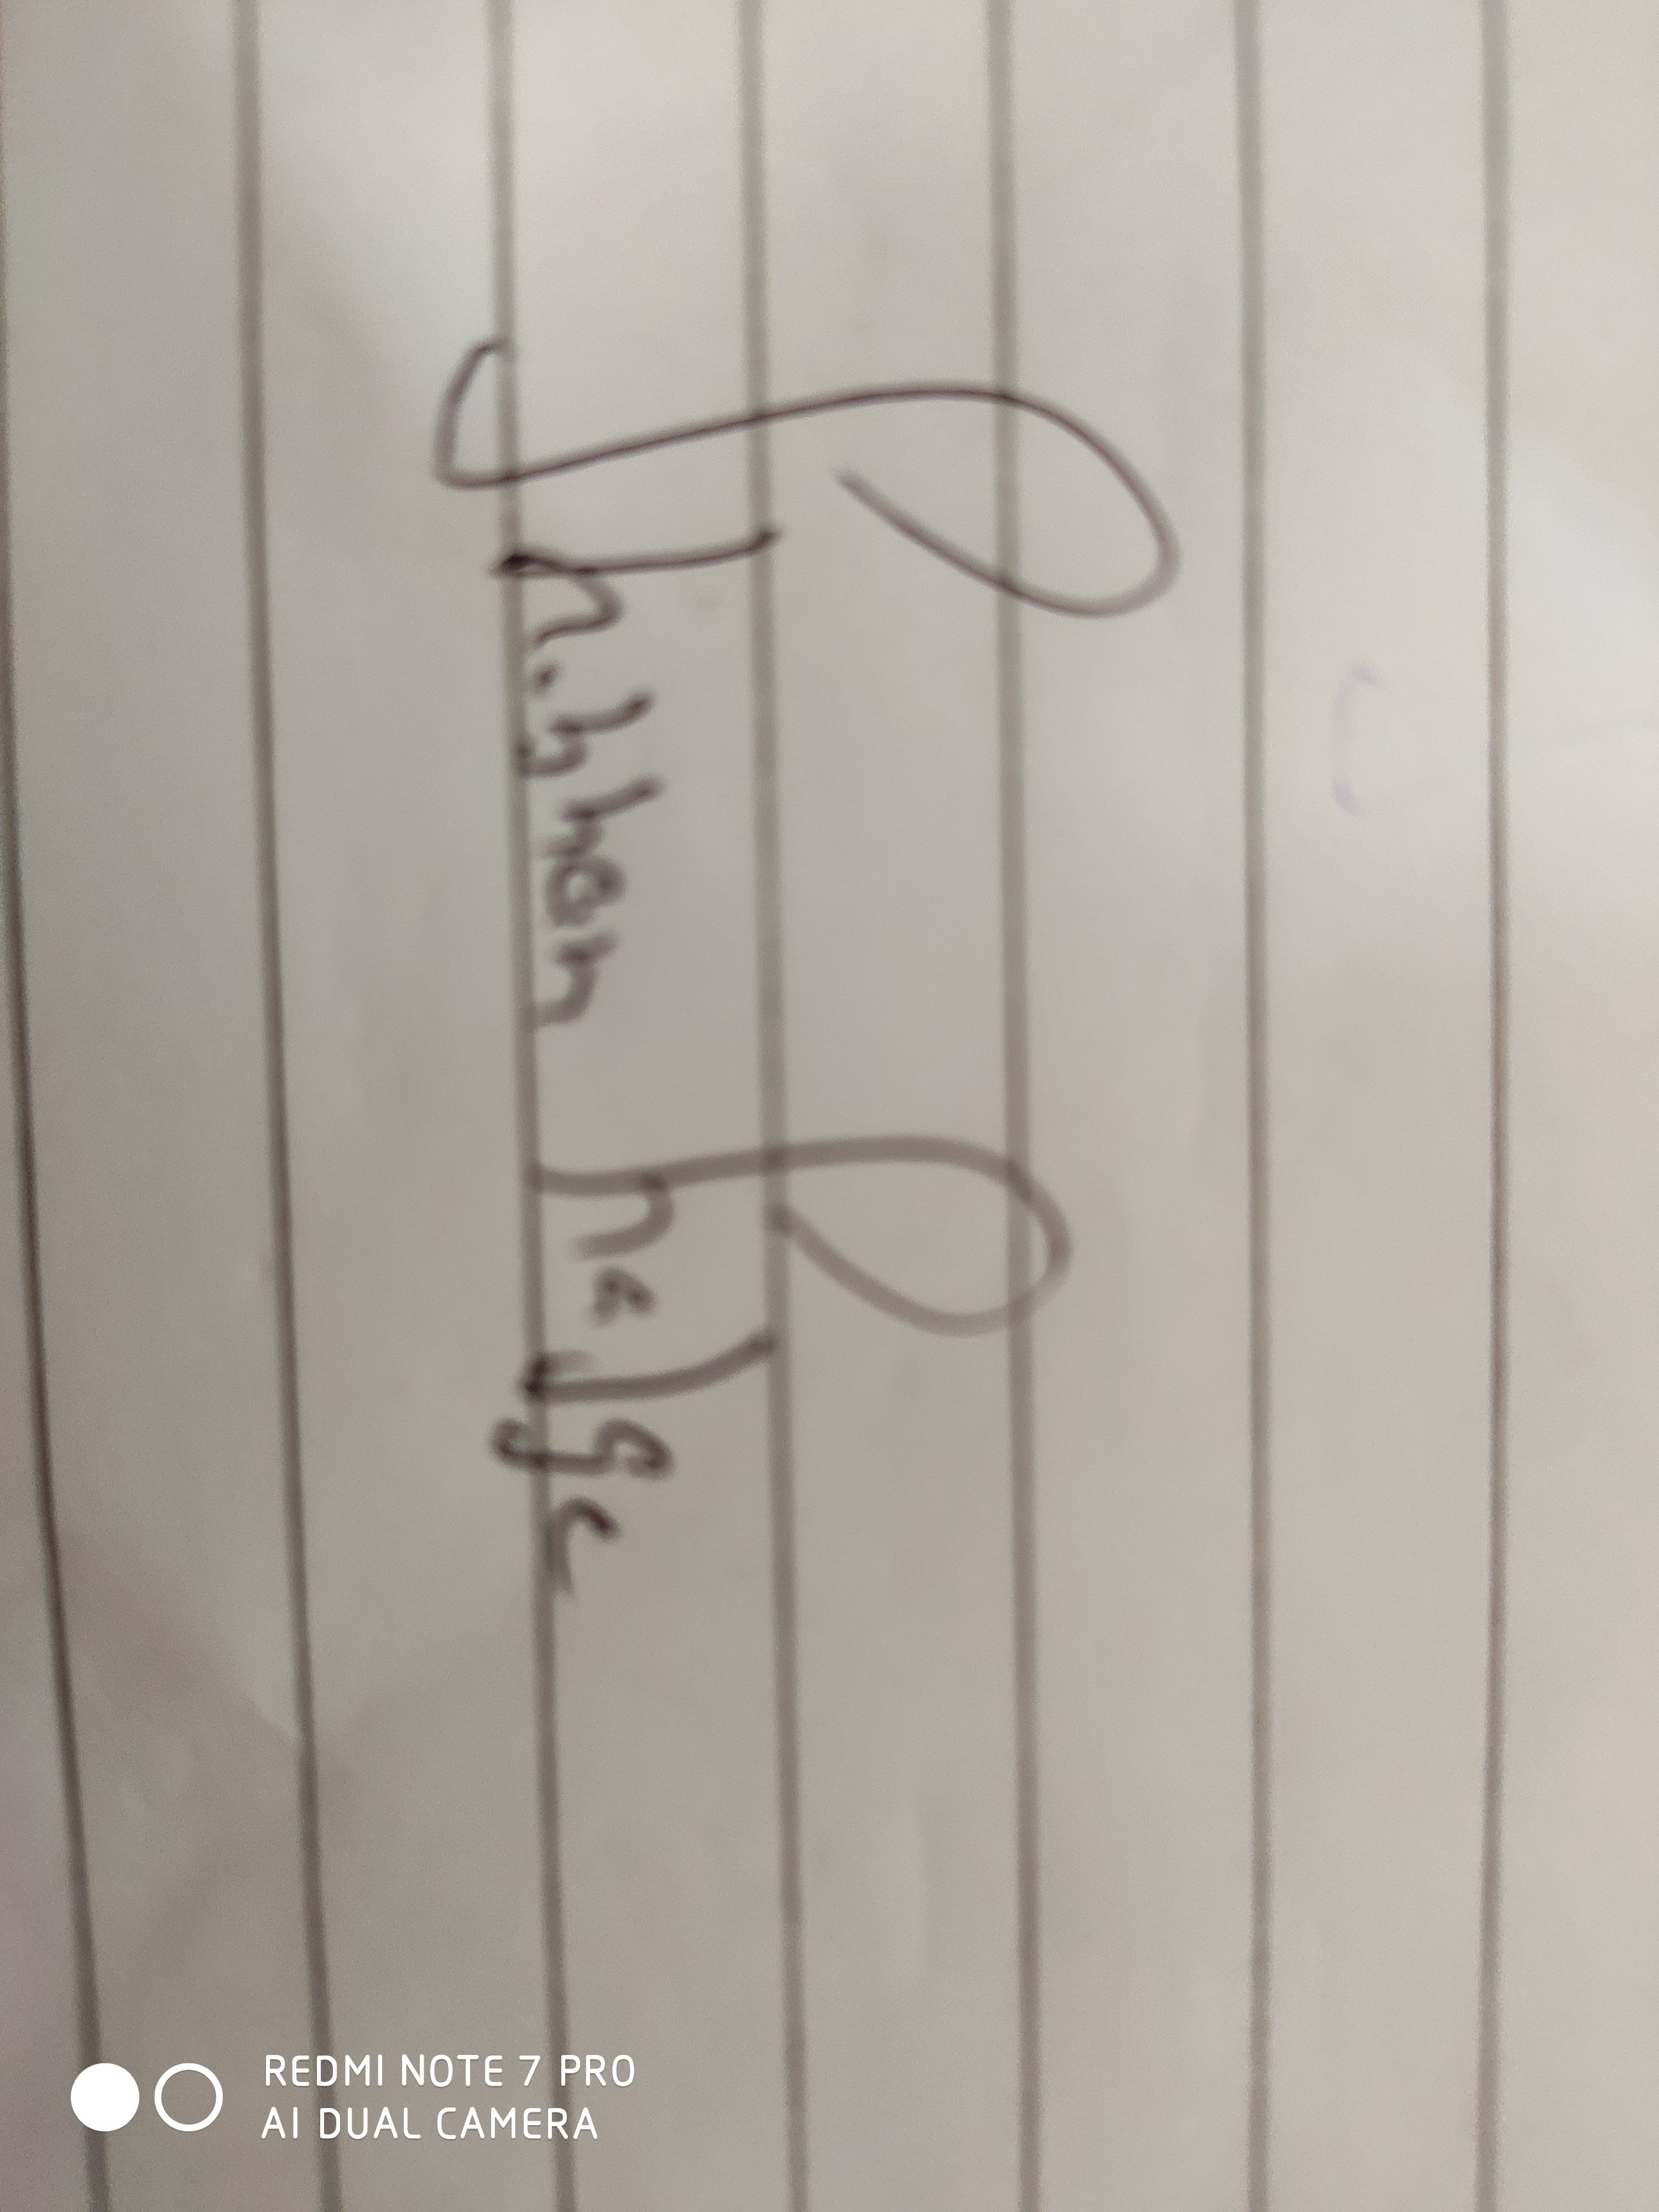 Shubham
REDMI NOTE 7 PRO
AI DUAL CAMERA